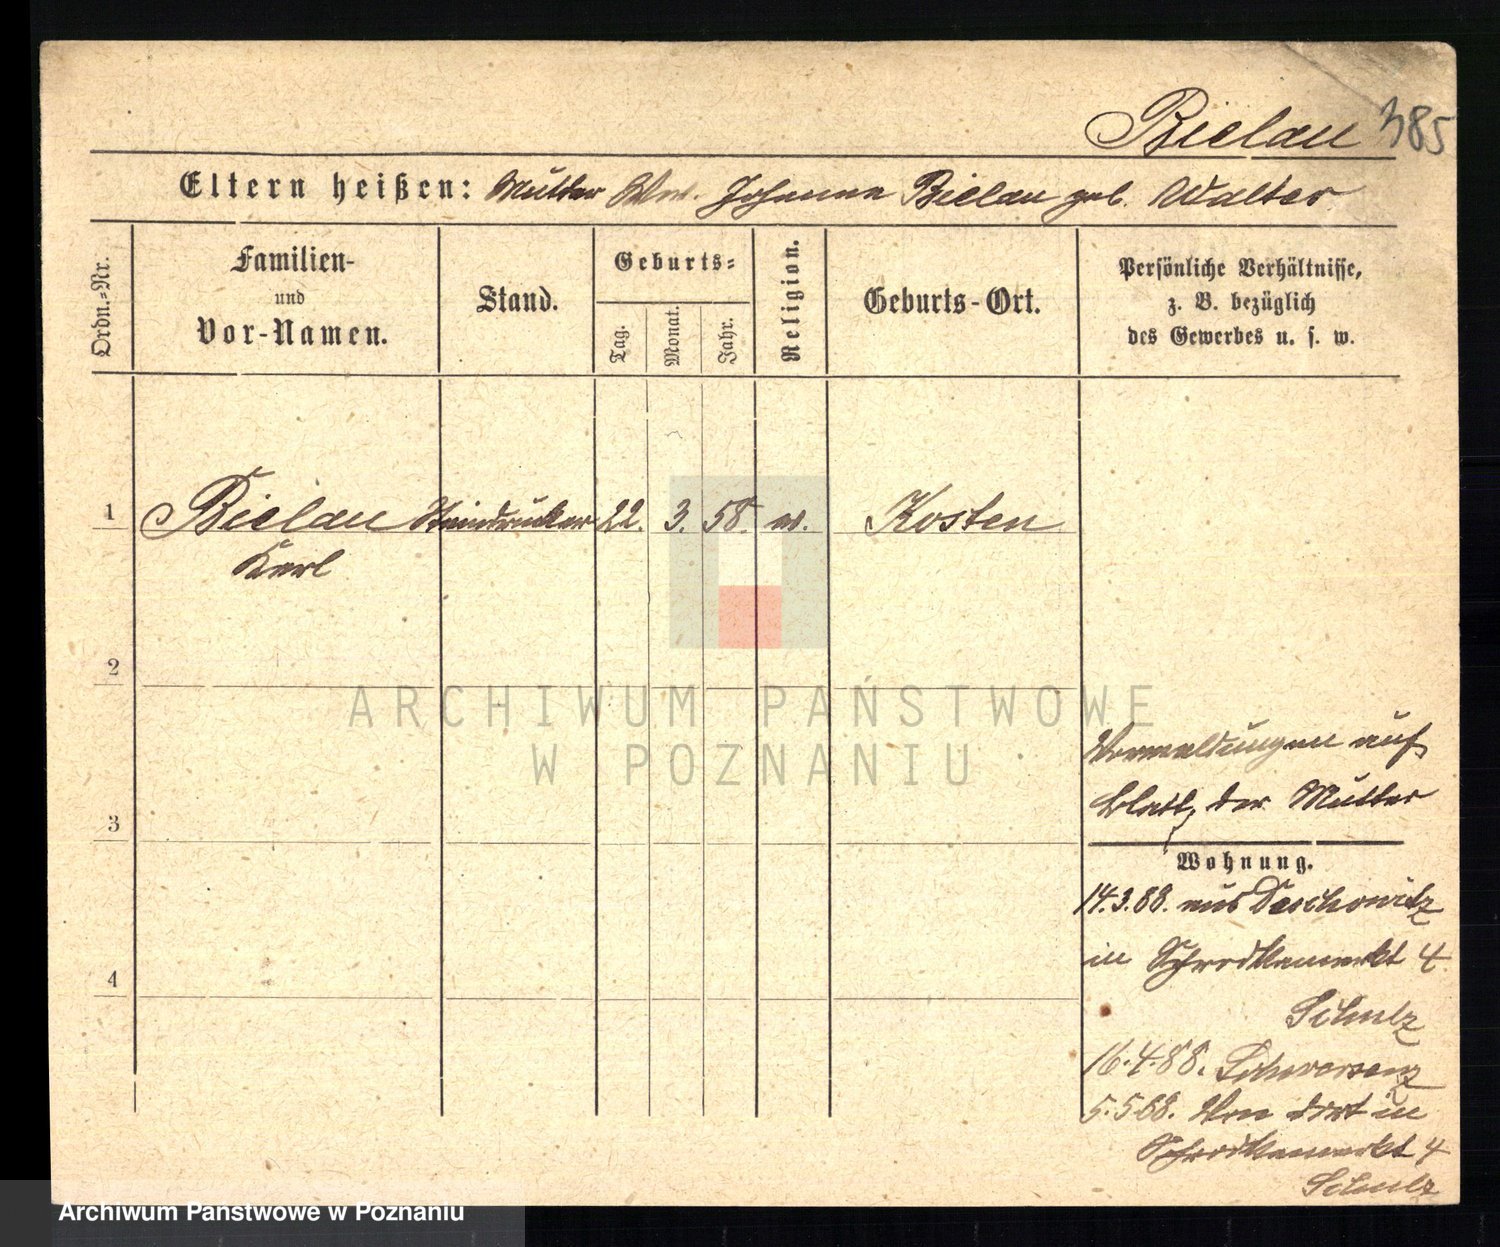 Bielau 385
Eltern heißen: Mutter Ww. Johanna Bielau geb. Walter
Ordn.-Nr.
Familien-
und
Vor-Namen.
Stand.
Geburts-
Tag.
Monat.
Jahr.
Religion.
Geburts-Ort.
Persönliche Verhältnisse,
z. B. bezüglich
des Gewerbes u. s. w.
1 Bielau Steindrucker 22. 3. 58. ev. Kosten
Karl
2
3
4
ARCHIWUM PAŃSTWOWE
W POZNANIU
Vormeldungen auf
Blatt der Mutter
Wohnung.
14.3.88. aus Deschowitz
in Schrodkamarkt 4
Schulz
16.4.88. Schwersenz
5.5.88. Von dort in
Schrodkamarkt 4
Schulz
Archiwum Państwowe w Poznaniu